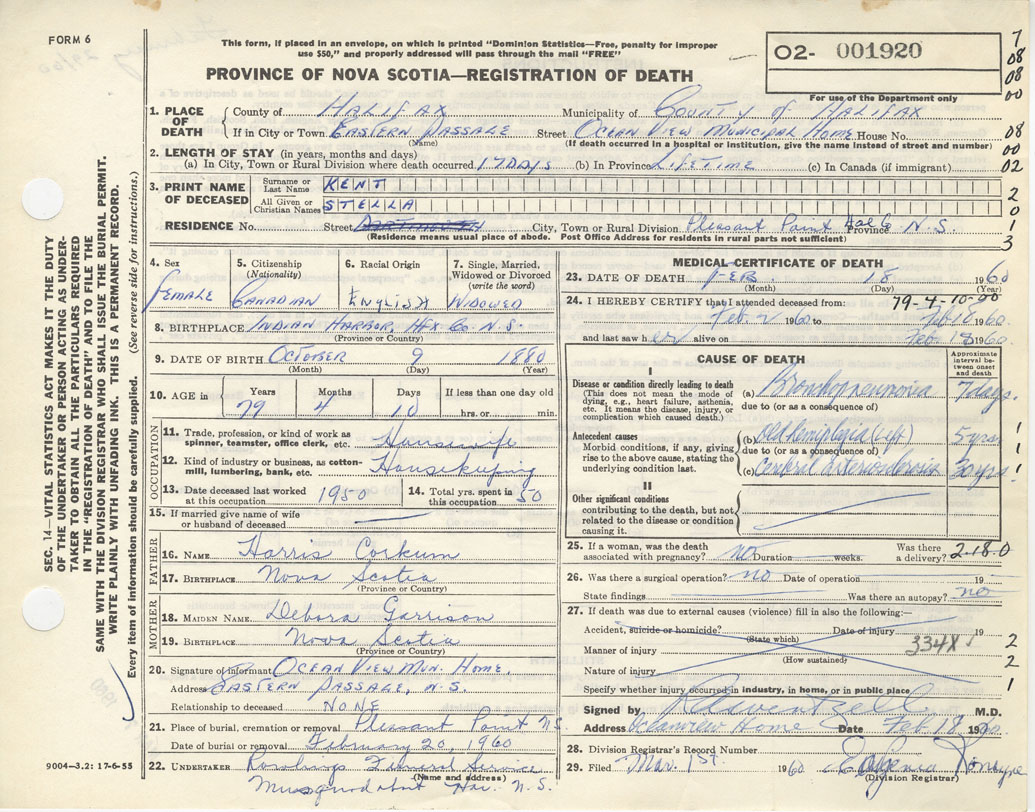 FORM 6
This form, if placed in an envelope, on which is printed "Dominion Statistics—Free, penalty for improper
use $50," and properly addressed will pass through the mail "FREE"
PROVINCE OF NOVA SCOTIA—REGISTRATION OF DEATH
O2- 001920
For use of the Department only
7
08
08
00
08
00
02
2
0
1
3
SEC. 14—VITAL STATISTICS ACT MAKES IT THE DUTY
OF THE UNDERTAKER OR PERSON ACTING AS UNDER-
TAKER TO OBTAIN ALL THE PARTICULARS REQUIRED
IN THE "REGISTRATION OF DEATH" AND TO FILE THE
SAME WITH THE DIVISION REGISTRAR WHO SHALL ISSUE THE BURIAL PERMIT.
WRITE PLAINLY WITH UNFADING INK. THIS IS A PERMANENT RECORD.
Every item of information should be carefully supplied. (See reverse side for instructions.)
1. PLACE OF DEATH County of HALIFAX Municipality of COUNTY OF HALIFAX
If in City or Town EASTERN PASSAGE Street OCEAN VIEW MUNICIPAL HOME House No.
(Name) (If death occurred in a hospital or institution, give the name instead of street and number)
2. LENGTH OF STAY (in years, months and days)
(a) In City, Town or Rural Division where death occurred 17 DAYS (b) In Province LIFETIME (c) In Canada (if immigrant)
3. PRINT NAME OF DECEASED Surname or Last Name KENT
All Given or Christian Names STELLA
RESIDENCE No. Street DARTMOUTH City, Town or Rural Division Pleasant Point Province N.S.
(Residence means usual place of abode. Post Office Address for residents in rural parts not sufficient)
4. Sex FEMALE
5. Citizenship (Nationality) CANADIAN
6. Racial Origin ENGLISH
7. Single, Married, Widowed or Divorced (write the word) WIDOWED
8. BIRTHPLACE INDIAN HARBOR, HFX CO. N.S.
(Province or Country)
9. DATE OF BIRTH OCTOBER 9 1880
(Month) (Day) (Year)
10. AGE in Years 79 Months 4 Days 10 If less than one day old hrs. or min.
OCCUPATION
11. Trade, profession, or kind of work as
spinner, teamster, office clerk, etc. Housewife
12. Kind of industry or business, as cotton-
mill, lumbering, bank, etc. Housekeeping
13. Date deceased last worked at this occupation 1950 14. Total yrs. spent in this occupation 50
15. If married give name of wife
or husband of deceased
FATHER
16. NAME Harris Corkum
17. BIRTHPLACE Nova Scotia
(Province or Country)
MOTHER
18. MAIDEN NAME Debora Garrison
19. BIRTHPLACE Nova Scotia
(Province or Country)
20. Signature of informant OCEAN VIEW MUN. HOME.
Address EASTERN PASSAGE, N.S.
Relationship to deceased NONE
21. Place of burial, cremation or removal Pleasant Point NS
Date of burial or removal February 20, 1960
22. UNDERTAKER Funeral Service
(Name and address)
Musquodoboit Har. N.S.
9004—3.2: 17-6-55
MEDICAL CERTIFICATE OF DEATH
23. DATE OF DEATH FEB 18 1960
(Month) (Day) (Year)
24. I HEREBY CERTIFY that I attended deceased from: 79-4-10-00
Feb. 2 1960 to Feb 18 1960
and last saw her alive on Feb. 18 1960
CAUSE OF DEATH
Approximate interval between onset and death
I
Disease or condition directly leading to death
(This does not mean the mode of
dying, e.g., heart failure, asthenia,
etc. It means the disease, injury, or
complication which caused death.)
(a) Bronchopneumonia 7 days
due to (or as a consequence of)
Antecedent causes
Morbid conditions, if any, giving
rise to the above cause, stating the
underlying condition last.
(b) Old Hemiplegia (left) 5 yrs
due to (or as a consequence of)
(c) Cerebral Arteriosclerosis 30 yrs
II
Other significant conditions
contributing to the death, but not
related to the disease or condition
causing it.
25. If a woman, was the death associated with pregnancy? no Duration weeks. Was there a delivery? 2.18.0
26. Was there a surgical operation? no Date of operation 19
State findings Was there an autopsy? no
27. If death was due to external causes (violence) fill in also the following:—
Accident, suicide or homicide? Date of injury 19
(State which)
Manner of injury 334X
(How sustained)
Nature of injury
Specify whether injury occurred in industry, in home, or in public place
2
2
1
Signed by M.D.
Address Oceanview Home Date Feb 18 1960
28. Division Registrar's Record Number
29. Filed Mar. 1st. 1960 Eugenia
(Division Registrar)